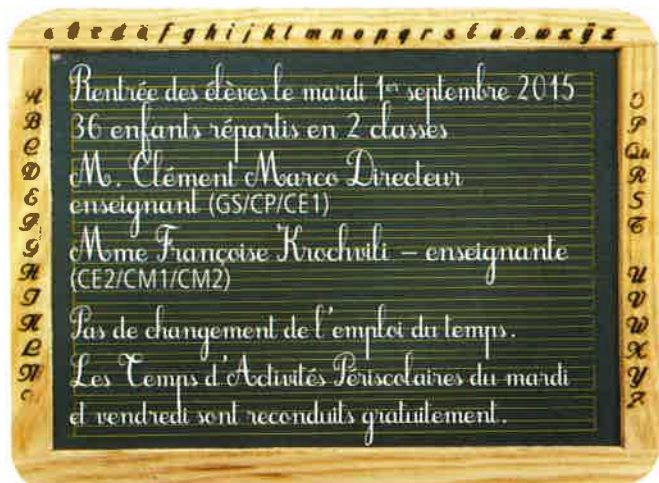 f g h i j k l m n o p q r s t u v w x y z
A
B
C
D
E
F
G
H
I
K
L
M
Rentrée des élèves le mardi 1er septembre 2015
36 enfants répartis en 2 classes
M. Clément Marco Directeur
enseignant (GS/CP/CE1)
Mme Françoise Krochvili – enseignante
(CE2/CM1/CM2)
Pas de changement de l'emploi du temps.
Les Temps d'Activités Périscolaires du mardi
et vendredi sont reconduits gratuitement.
O
P
Qu
R
S
T
U
V
W
X
Y
Z